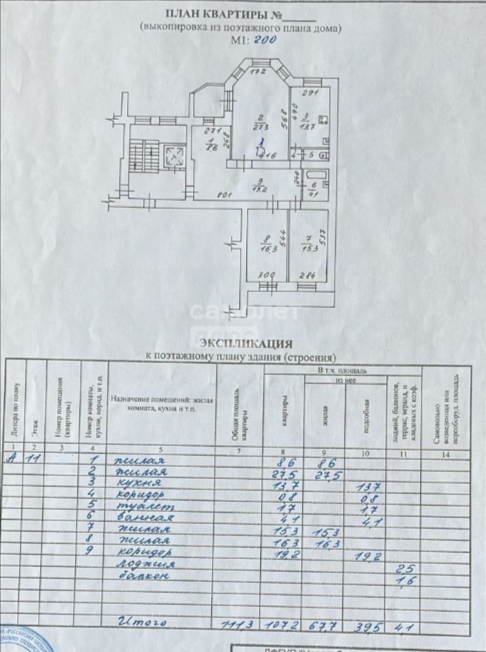 ПЛАН КВАРТИРЫ №
(выкопировка из поэтажного плана дома)
М1: 200
172
291
271
268
1
8.6
2
27.3
568
470
3
13.7
416
4
5
801
9
19.2
244
6
4.1
8
16.3
544
15.3
537
309
284
самолет
ЭКСПЛИКАЦИЯ
к поэтажному плану здания (строения)
Литера по плану
Этаж
Номер помещения (квартиры)
Номер комнаты, кухни, корид. и т.п.
Назначение помещений: жилая комната, кухня и т.п.
Общая площадь квартиры
В т.ч. площадь
квартиры
из нее
жилая
подсобная
лоджий, балконов, террас, веранд, и кладовых с коэф.
Самовольно возведенная или переоборуд. площадь
1 2 3 4 5 7 8 9 10 11 14
А 11 1 жилая 8.6 8.6
2 жилая 27.5 27.5
3 кухня 13.7 13.7
4 коридор 0.8 0.8
5 туалет 1.7 1.7
6 ванная 4.1 4.1
7 жилая 15.3 15.3
8 жилая 16.3 16.3
9 коридор 19.2 19.2
лоджия 2.5
балкон 1.6
Итого 111.3 107.2 67.7 39.5 4.1